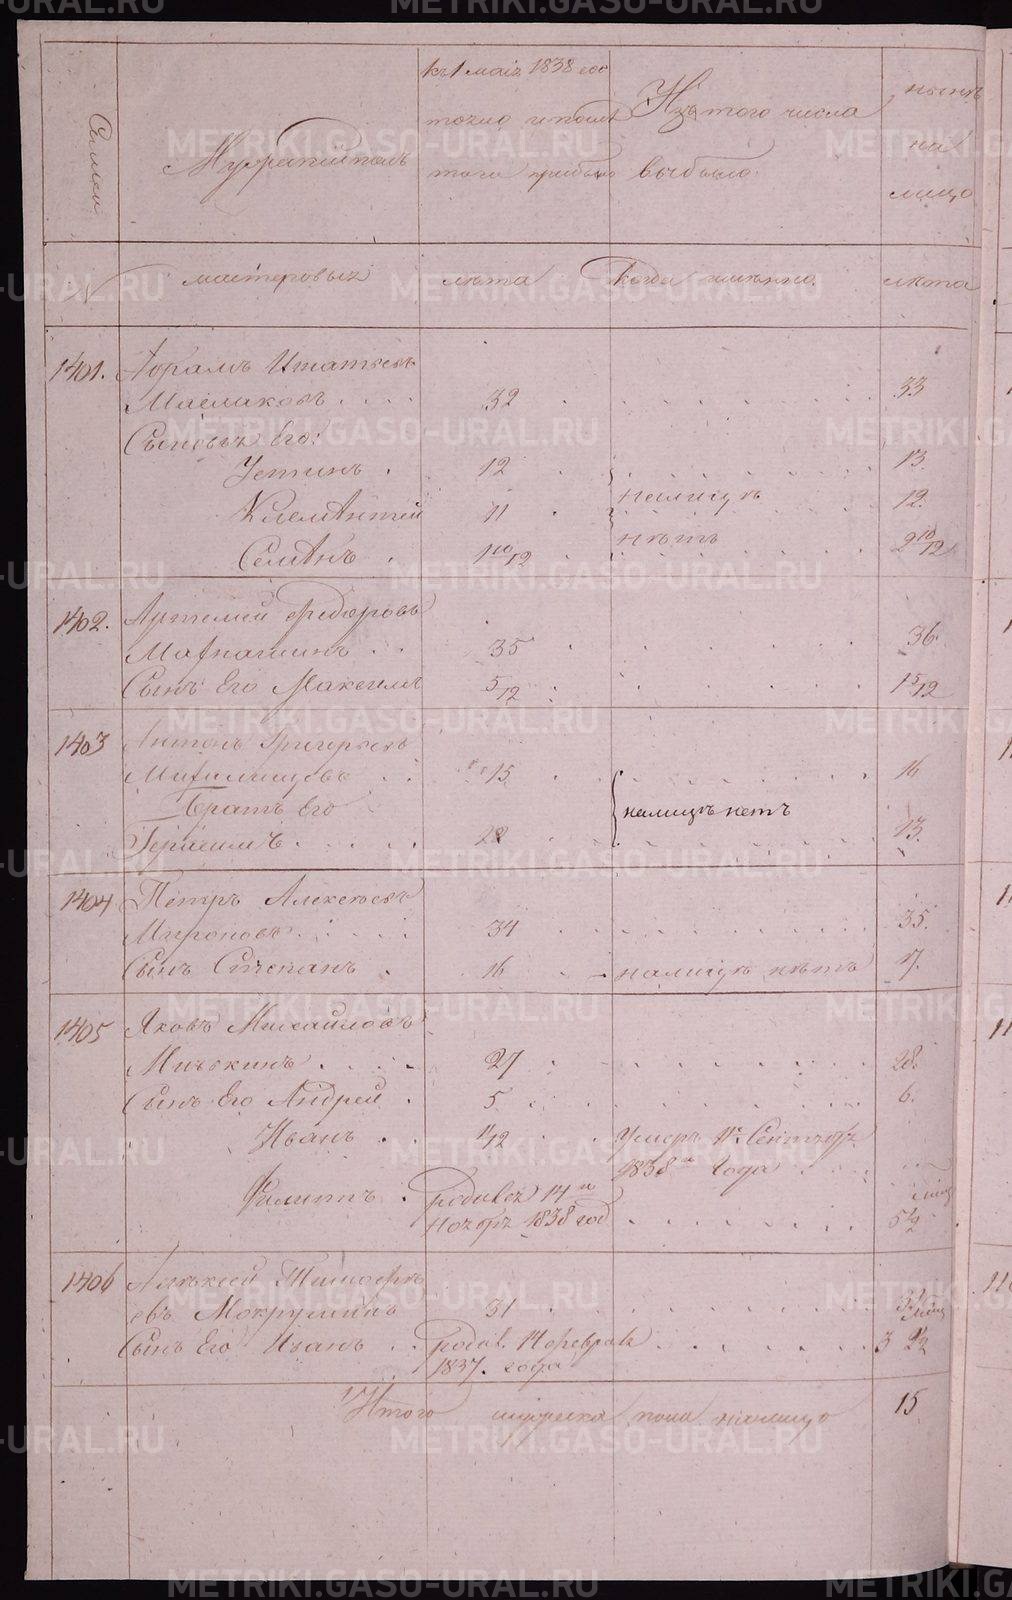 Семеи
Мужескій полъ
къ 1 маія 1838 го
того прибыло
Изъ того числа
выбыло.
нынѣ
на
лицо
№
мастеровых
лѣта
Когда именно.
лѣта
1401. Абрамъ Игнатьевъ
Маслаковъ . . . 32 33
Сыновья Его:
Устинъ . 12 13.
Клементей 11 налицѣ 12.
нѣтъ
Семенъ . 1 10/12 2 10/12
1402. Артемей Федоровъ
35 36.
Сынъ Его Максимъ 5/12 1 5/12
1403 Антонъ Григорьевъ
15 16
Братъ Его налицѣ нетъ
13.
1404 Петръ Алексѣевъ
Мироновъ . . . . 34 35.
Сынъ Степанъ . 16 налицѣ нѣтъ 17.
1405 Яковъ Михайловъ
Мичькинъ . . . . 27 28.
Сынъ Его Андрей . 5 6.
Иванъ . . 1/12 Умеръ 11го Сентября
1838го Года
Филипъ . родився 14го
ноября 1838 год
1406 Алексей Тимофѣ
евъ Мокрушинъ 31
Сынъ Его Иванъ . . родив. 14 февраля
1837. года
Итого мужеска пола налицо 15
METRIKI.GASO-URAL.RU